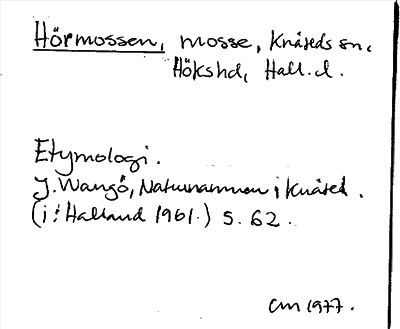 Hörmossen, mosse, Knäreds sn,
Hökshd, Hall. l.
Etymologi.
J. Wangö, Naturnamnen i Knäred.
(i: Halland 1961.) S. 62.
CM 1977.